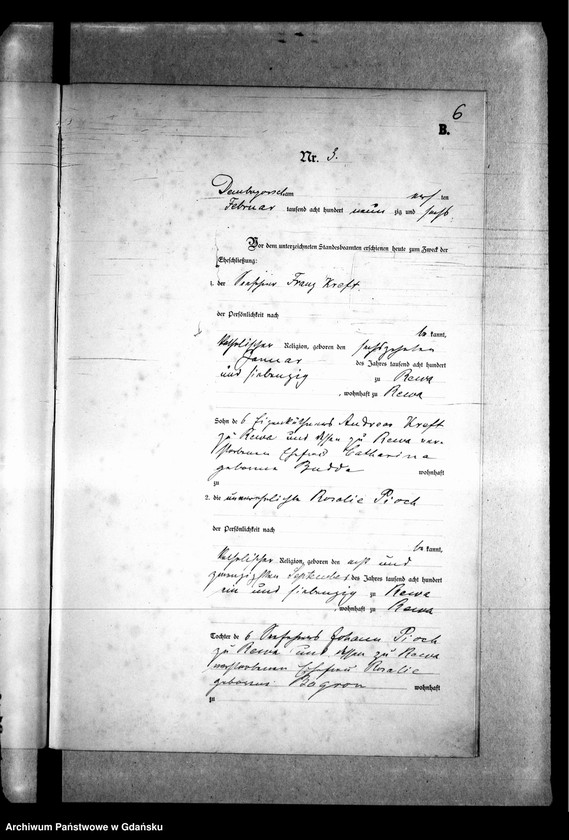 6
B.
Nr. 3.
Dembogorsch am ten
Februar tausend acht hundert neun zig und sechs
Vor dem unterzeichneten Standesbeamten erschienen heute zum Zweck der
Eheschließung:
1. der Seefahrer Franz Kreft
der Persönlichkeit nach
be kannt,
katholischer Religion, geboren den sechszehnten
Januar des Jahres tausend acht hundert
und siebenzig zu Rewa
, wohnhaft zu Rewa
Sohn de s Eigenkäthners Andreas Kreft
zu Rewa und dessen zu Rewa ver-
storbenen Ehefrau Catharina
geborene Budda wohnhaft
zu
2. die unverehelichte Rosalie Pioch
der Persönlichkeit nach
be kannt,
katholischer Religion, geboren den acht und
zwanzigsten September des Jahres tausend acht hundert
ein und siebenzig zu Rewa
, wohnhaft zu Rewa
Tochter de s Seefahrers Johann Pioch
zu Rewa und dessen zu Rewa
verstorbenen Ehefrau Rosalie
geborene wohnhaft
zu
Archiwum Państwowe w Gdańsku